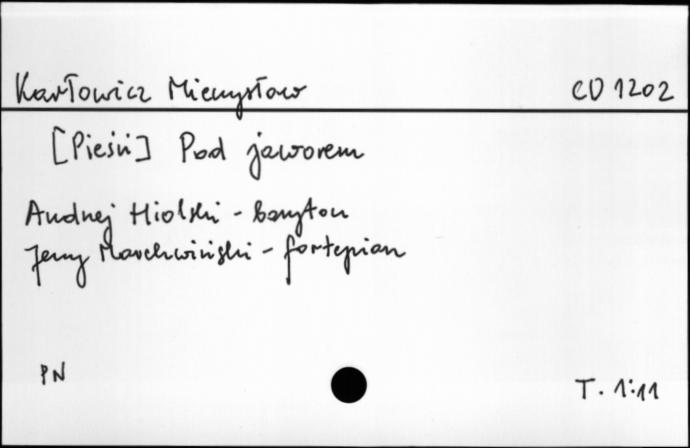 Karłowicz Mieczysław CD 1202
[Pieśń] Pod jaworem
Andrzej Hiolski - baryton
Jerzy Marchwiński - fortepian
PN
T. 1:11